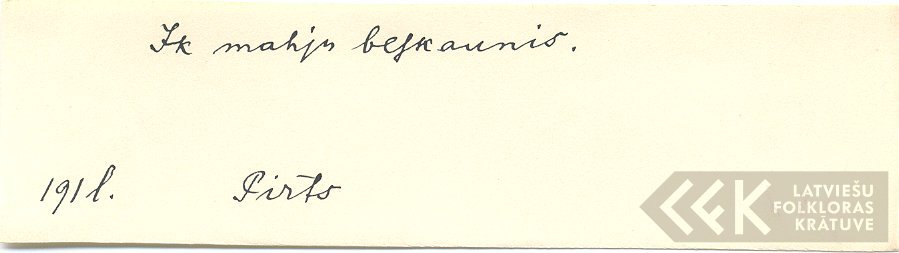 Ik mahju beſkaunis.
191 l. Pirts
LATVIEŠU
FOLKLORAS
KRĀTUVE